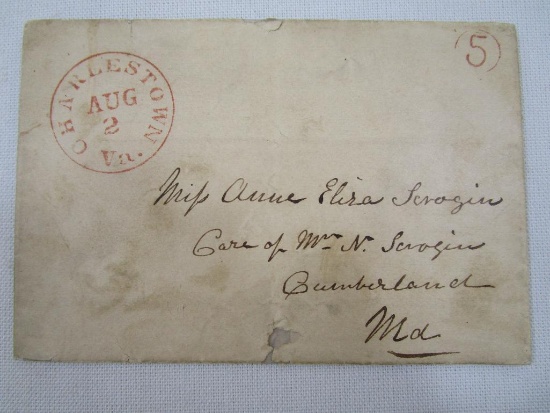 CHARLESTOWN
AUG
2
Va.
5
Miss Anne Eliza Scrogin
Care of Mr. N. Scrogin
Cumberland
Md